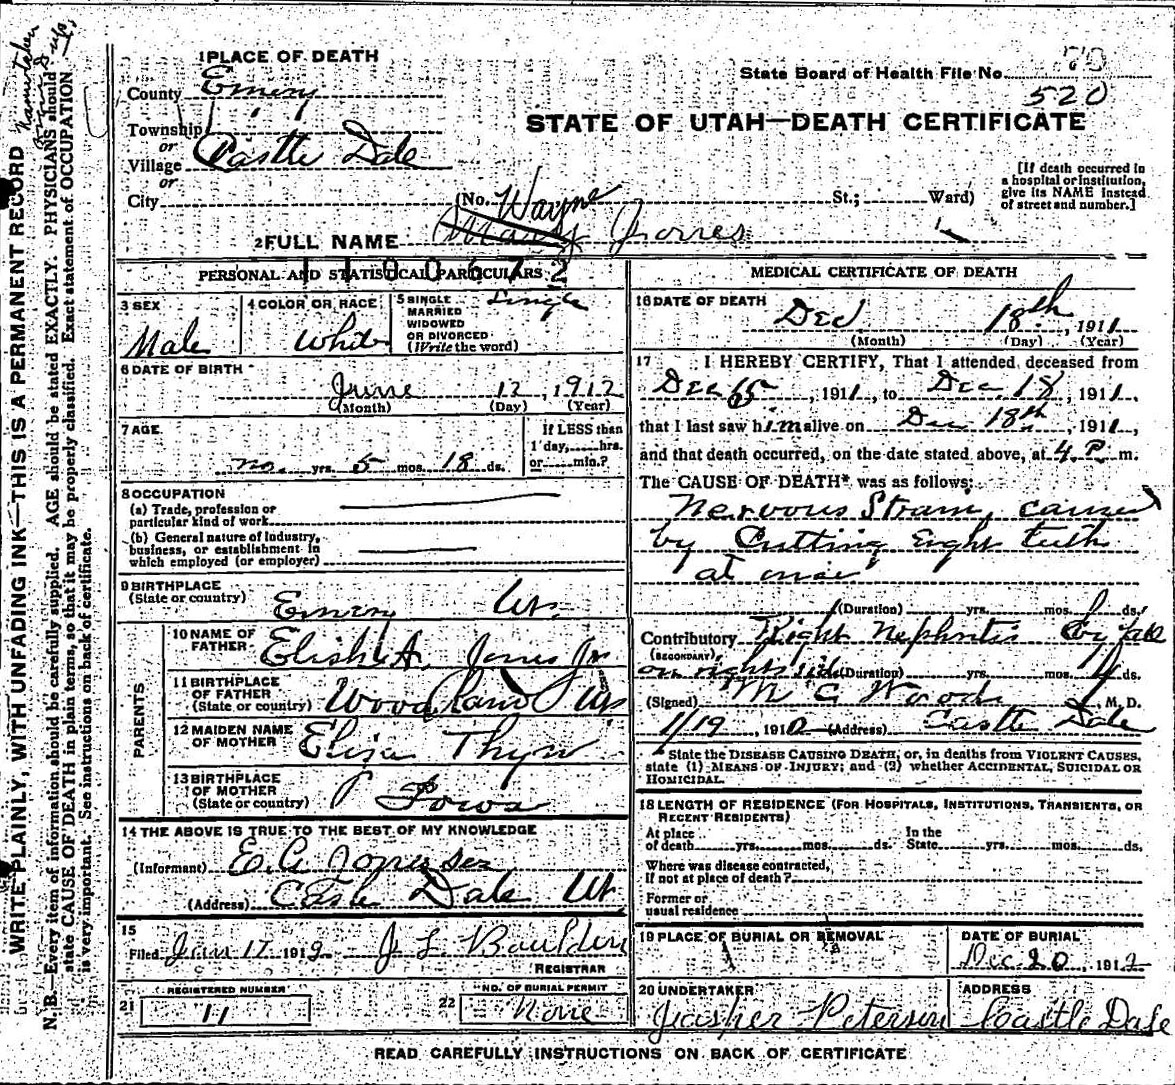 1 PLACE OF DEATH
County Emery
Township
or
Village Castle Dale
or
City
State Board of Health File No.
520
STATE OF UTAH—DEATH CERTIFICATE
(No. St.; Ward)
[If death occurred in
a hospital or institution,
give its NAME instead
of street and number.]
Wayne
2 FULL NAME Mary Jones
PERSONAL AND STATISTICAL PARTICULARS
1100672
3 SEX
Male
4 COLOR OR RACE
White
5 SINGLE
MARRIED
WIDOWED
OR DIVORCED
(Write the word)
Single
6 DATE OF BIRTH
June 12, 1912
(Month) (Day) (Year)
7 AGE
no. yrs. 5 mos. 18 ds.
If LESS than
1 day,.....hrs.
or.....min.?
8 OCCUPATION
(a) Trade, profession or
particular kind of work
(b) General nature of industry,
business, or establishment in
which employed (or employer)
9 BIRTHPLACE
(State or country)
Emery Ut.
PARENTS
10 NAME OF
FATHER
Elisha A. Jones Jr
11 BIRTHPLACE
OF FATHER
(State or country)
Woodland Ut
12 MAIDEN NAME
OF MOTHER
Eliza
13 BIRTHPLACE
OF MOTHER
(State or country)
Iowa
14 THE ABOVE IS TRUE TO THE BEST OF MY KNOWLEDGE
(Informant) E. A. Jones Ser
(Address) Castle Dale Ut
15
Filed Jan 17 1912 J L
REGISTRAR
REGISTERED NUMBER
21 11
NO. OF BURIAL PERMIT
22 None
MEDICAL CERTIFICATE OF DEATH
16 DATE OF DEATH
Dec 18th, 1911
(Month) (Day) (Year)
17 I HEREBY CERTIFY, That I attended deceased from
Dec, 1911, to Dec. 18, 1911,
that I last saw him alive on Dec 18th, 1911,
and that death occurred, on the date stated above, at 4 P. m.
The CAUSE OF DEATH* was as follows:
Nervous Strain, caused
by Cutting Eight teeth
at once
(Duration) yrs. mos. ds.
Contributory Right Nephritis
(SECONDARY)
on right side (Duration) yrs. mos. ds.
(Signed) M. D.
1/19, 191 (Address) Castle Dale
State the DISEASE CAUSING DEATH, or, in deaths from VIOLENT CAUSES,
state (1) MEANS OF INJURY; and (2) whether ACCIDENTAL, SUICIDAL OR
HOMICIDAL.
18 LENGTH OF RESIDENCE (FOR HOSPITALS, INSTITUTIONS, TRANSIENTS, OR
RECENT RESIDENTS)
At place
of death yrs. mos. ds.
In the
State yrs. mos. ds.
Where was disease contracted,
If not at place of death?
Former or
usual residence
19 PLACE OF BURIAL OR REMOVAL
DATE OF BURIAL
Dec 20, 1912
20 UNDERTAKER
Jasper Peterson
ADDRESS
Castle Dale
READ CAREFULLY INSTRUCTIONS ON BACK OF CERTIFICATE
WRITE PLAINLY, WITH UNFADING INK—THIS IS A PERMANENT RECORD
N. B.—Every item of information should be carefully supplied. AGE should be stated EXACTLY. PHYSICIANS should
state CAUSE OF DEATH in plain terms, so that it may be properly classified. Exact statement of OCCUPATION
is very important. See instructions on back of certificate.